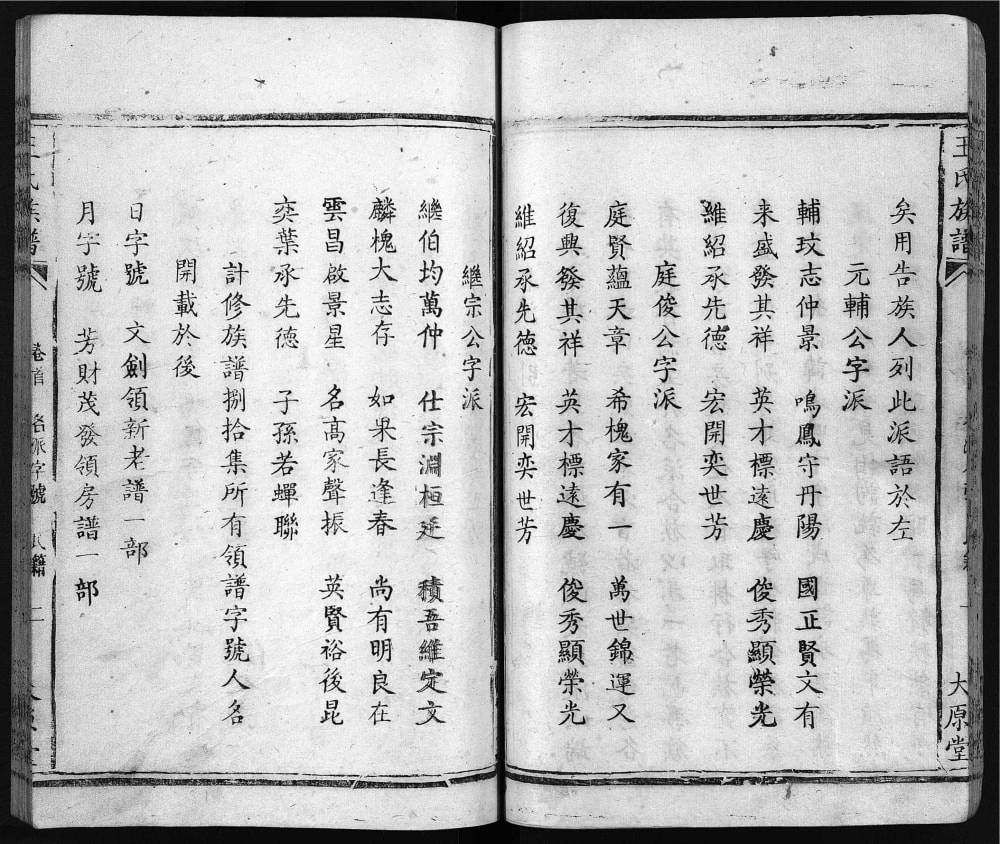 王氏族譜
大原堂
矣用告族人列此派語於左
元輔公字派
輔玟志仲景　鳴鳳守丹陽　國正賢文有
来盛發其祥　英才標遠慶　俊秀顯榮光
維紹承先德　宏開奕世芳
庭俊公字派
庭賢蘊天章　希槐家有一　萬世錦運又
復興發其祥　英才標遠慶　俊秀顯榮光
維紹承先德　宏開奕世芳
繼宗公字派
繼伯均萬仲　仕宗淵桓廷　積吾維定文
麟槐大志存　如果長逢春　尚有明良在
雲昌啟景星　名高家聲振　英賢裕後昆
奕葉承先德　子孫若蟬聯
計修族譜捌拾集所有領譜字號人名
開載於後
日字號　文劍領新老譜一部
月字號　芳財茂發領房譜一部
王氏族譜
卷首　各派字號　二